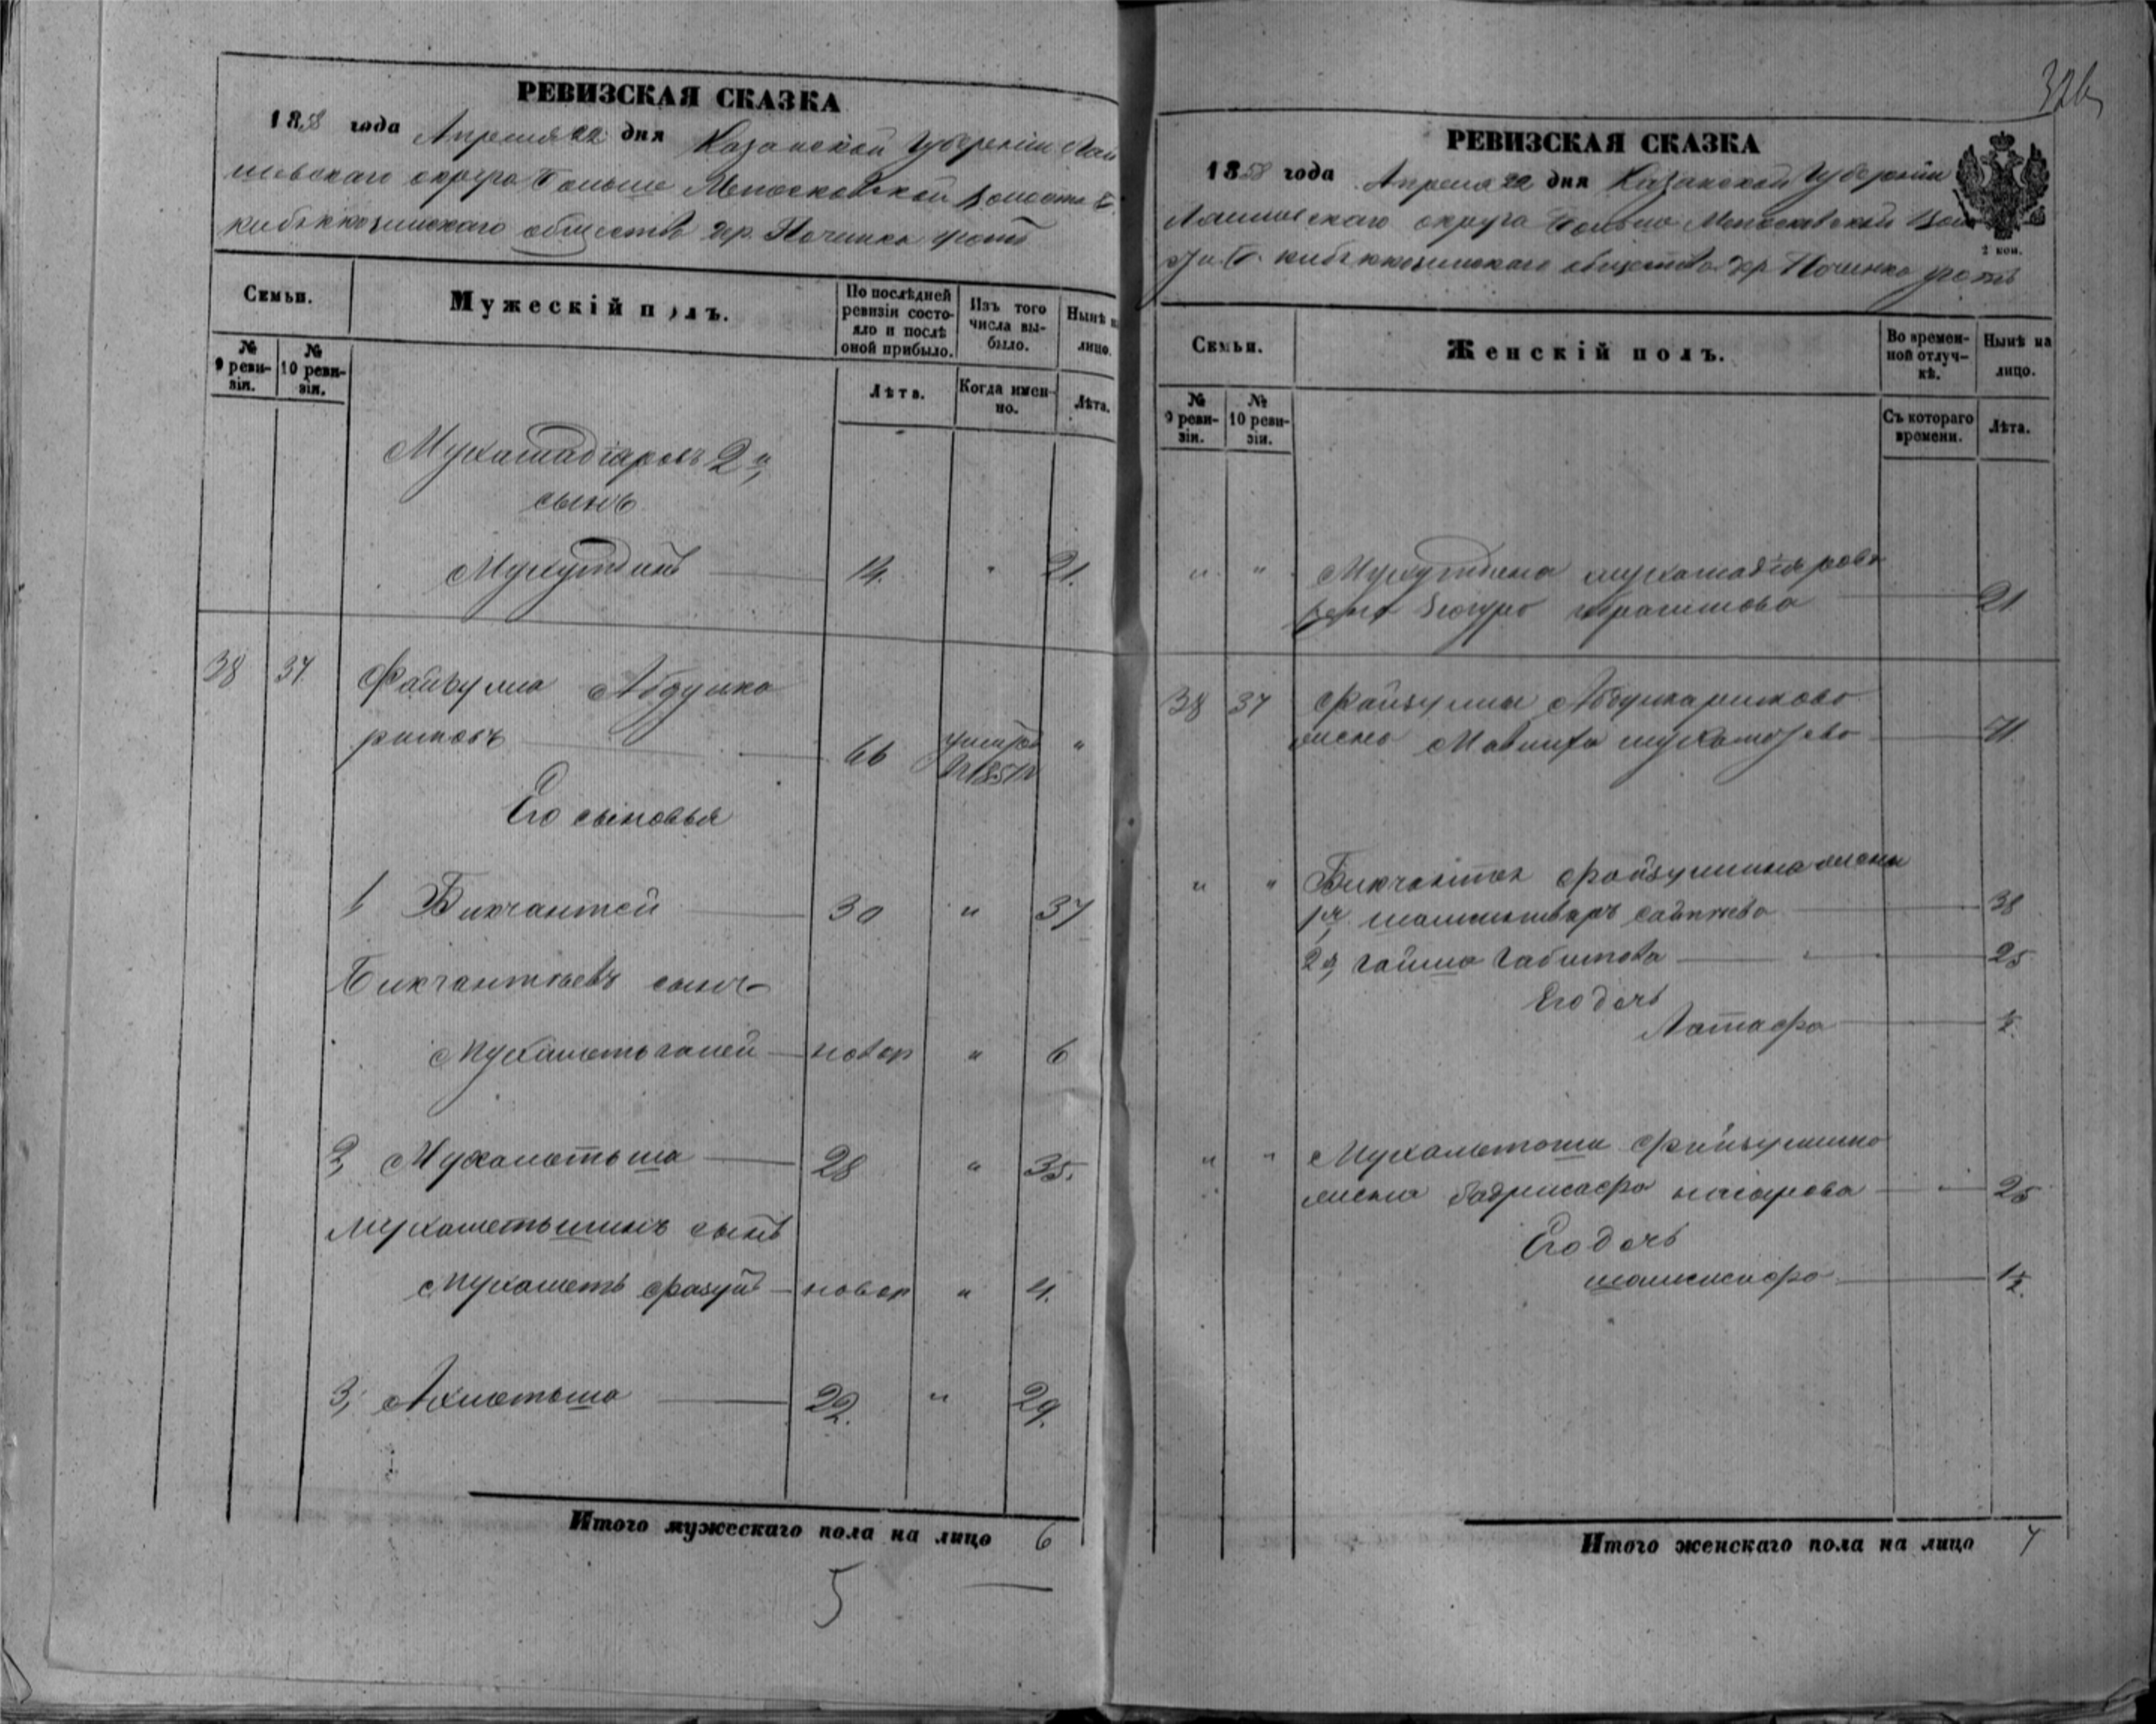 РЕВИЗСКАЯ СКАЗКА
1858 года Апреля 22 дня Казанской Губернии Лаи
шевскаго округа Больше Менгерской Волости Б.
общества дер. Починка
Семьи.
Мужескій полъ.
По послѣдней ревизіи состояло и послѣ оной прибыло.
Изъ того числа выбыло.
Нынѣ на лицо.
№ 9 ревизіи.
№ 10 ревизіи.
Лѣта.
Когда именно.
Лѣта.
Мухамадіяровъ 2й
сынъ
Мухутдинъ 14. " 21.
38 37 Файзулла Абдулка
римовъ 66 умеръ в 1851 "
Его сыновья
1 Бикчантей 30 " 37
Бикчантьевъ сынъ
Мухаметьганей новор " 6
2, Мухаметьша 28 " 35.
Мухаметьшинъ сынъ
Мухаметь новор " 4.
3, Ахметьша 22. " 29.
Итого мужескаго пола на лицо 6
5
326
РЕВИЗСКАЯ СКАЗКА
1858 года Апреля 22 дня Казанской Губерніи
Лаишевскаго округа Больше Менгерской Воло
сти Б. общества дер Починка
2 коп.
Семьи.
Женскій полъ.
Во временной отлучкѣ.
Нынѣ на лицо.
№ 9 ревизіи.
№ 10 ревизіи.
Съ котораго времени.
Лѣта.
" " Мухутдина Мухамадіярова
жена Ибрагимова 21
38 37 Файзуллы Абдулкаримова
жена 71.
" " Бикчантея Файзуллина жены
1я 38
2я, Габитова 25
Его дочь
Латафа ½.
" " Мухаметьши Файзуллина
жена Бадрисафа 25
Его дочь
½.
Итого женскаго пола на лицо 7